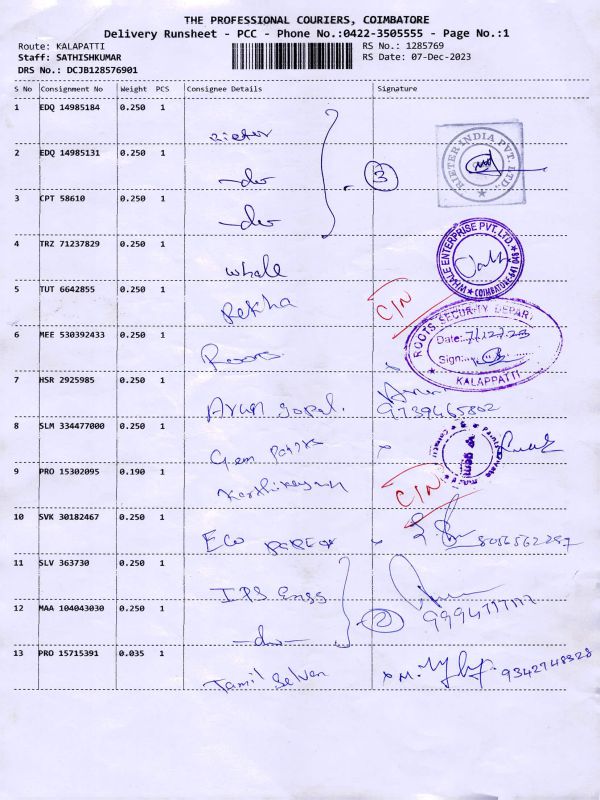 THE PROFESSIONAL COURIERS, COIMBATORE
Delivery Runsheet - PCC - Phone No.:0422-3505555 - Page No.:1
Route: KALAPATTI RS No.: 1285769
Staff: SATHISHKUMAR RS Date: 07-Dec-2023
DRS No.: DCJB128576901
S No Consignment No Weight PCS Consignee Details Signature
1 EDQ 14985184 0.250 1
Rieter
RIETER INDIA PVT. LTD.
2 EDQ 14985131 0.250 1
-do-
3
3 CPT 58610 0.250 1
-do-
4 TRZ 71237829 0.250 1
Whale
WHALE ENTERPRISE PVT. LTD. COIMBATORE-641 048
5 TUT 6642855 0.250 1
Rekha
C/N
6 MEE 530392433 0.250 1
Roots
ROOTS SECURITY DEPART
Date: 7/12/23
Sign:
KALAPPATTI
7 HSR 2925985 0.250 1
Arun gopal.
9739465802
8 SLM 334477000 0.250 1
Gem Paints
9 PRO 15302095 0.190 1
Karthikeyan
C/N
10 SVK 30182467 0.250 1
Eco
8056562287
11 SLV 363730 0.250 1
IPS Engg
12 MAA 104043030 0.250 1
-do-
2
13 PRO 15715391 0.035 1
Tamil Selvan
9342748328